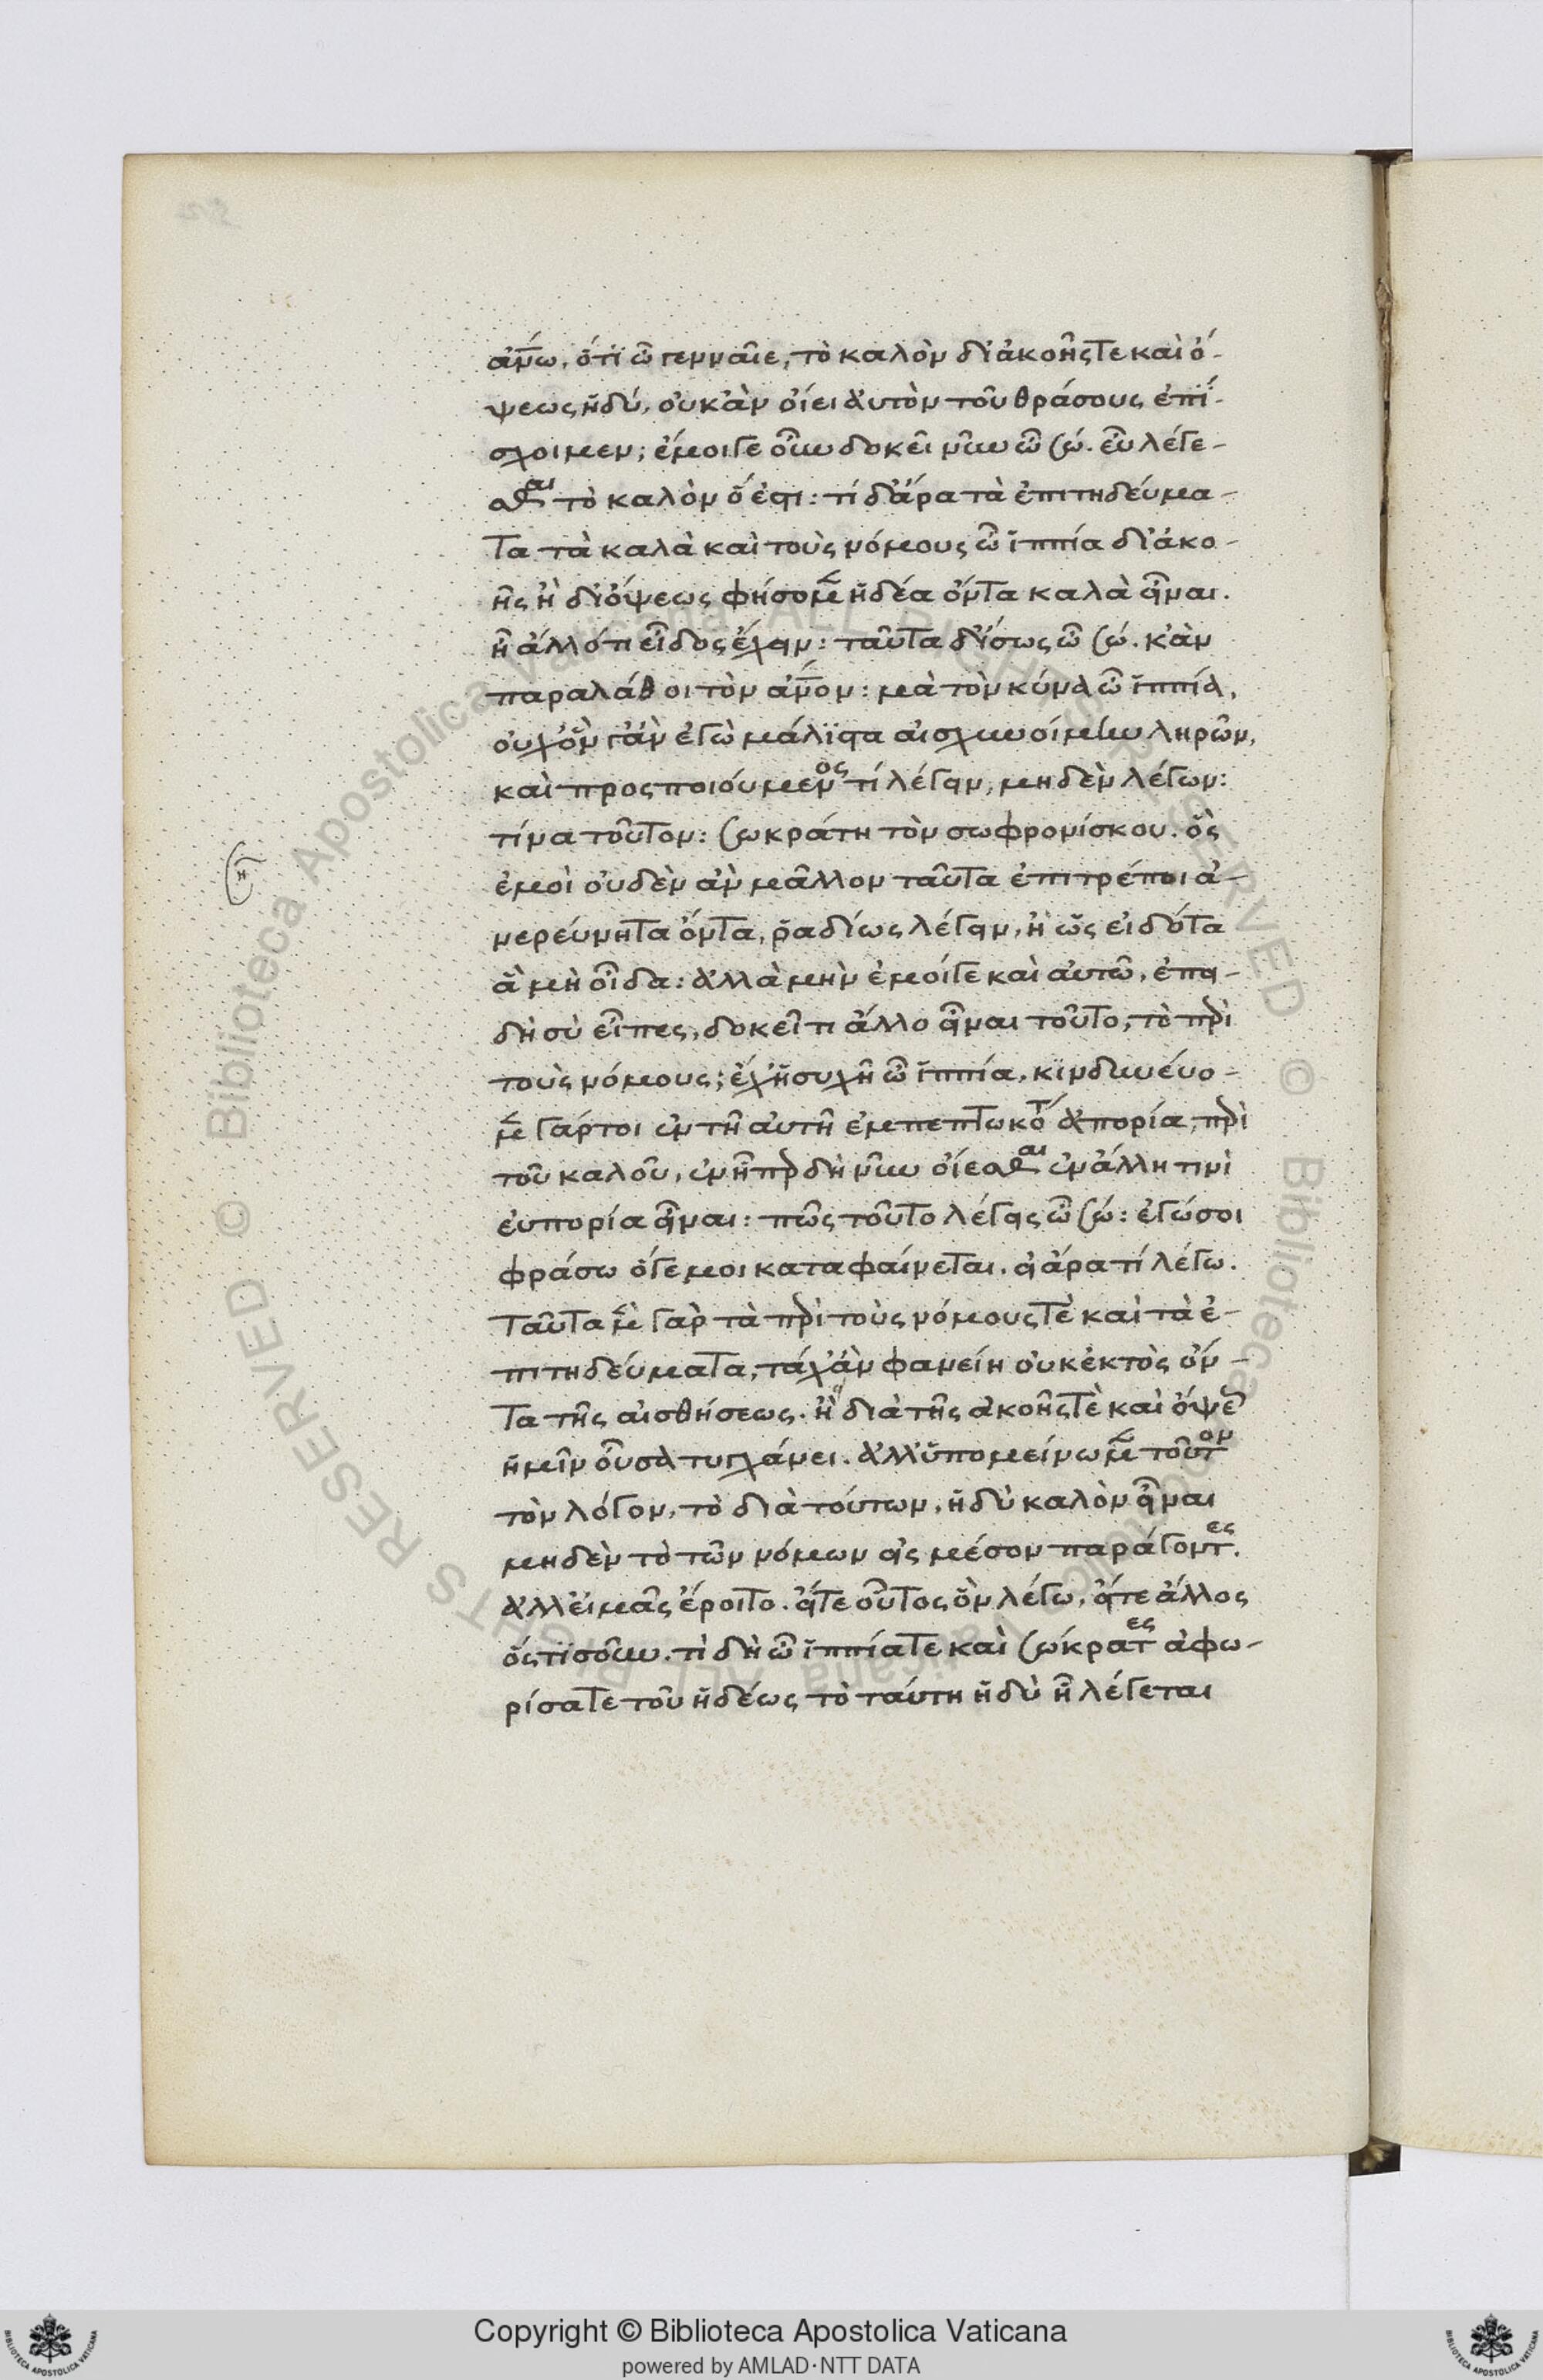 αν̅ω, ὅτϊ ὦ γενναῖε, τὸ καλὸν δι᾽ἀκοῆς τε καὶ ὄ-
ψεως ἡδύ, οὐκ ἂν οἴει ἀυτὸν τοῦ θράσους ἐπΐ-
σχοιμεν; ἐμοιγε οὖν δοκεῖ νῦν ὦ σώ. εὖ λέγε-
σθαι τὸ καλὸν ὅ ἐστι: τί δ᾽ἄρα τὰ ἐπιτηδεύμα-
τα τὰ καλὰ καὶ τοὺς νόμους ὦ ἱππία δι᾽ἀκο-
ῆς ἢ δι᾽ὄψεως φήσομ̅ ἡδέα ὄντα καλὰ εἶναι.
ἢ ἄλλό τι εἶδος ἔχειν: ταῦτα δ᾽ἴσως ὦ σώ. κἂν
παραλάθοι τὸν αν̅ον: μὰ τὸν κύνα ὦ ἱππία,
οὐχ ὃν γ᾽ἂν ἐγὼ μάλϊστα αἰσχυνοίμην ληρῶν,
καὶ προσποιούμενος τί λέγειν, μηδὲν λέγων:
τίνα τοῦτον: σωκράτη τὸν σωφρονίσκου. ὃς
ἐμοὶ οὐδὲν ἂν μᾶλλον ταῦτα ἐπιτρέποι ἀ-
νερεύνητα ὄντα, ῥαδίως λέγειν, ἢ ὡς εἰδότα
ἃ μὴ οἶδα: ἀλλὰ μὴν ἐμοίγε καὶ αὐτῶ, ἐπει-
δὴ σὺ εἶπες, δοκεῖ τι ἄλλο εἶναι τοῦτο, τὸ πρὶ
τοὺς νόμους; ἔχ᾽ἡσυχῆ ὦ ἱππία, κϊνδυνεύο-
μ̅ γάρ τοι ἐν τῆ αὐτῆ ἐμπεπτωκότ ἀπορία, πρὶ
τοῦ καλοῦ, ἐν ἧπρ δὴ νῦν οἴεσθαι ἐν ἄλλη τινὶ
εὐπορία εἶναι: πῶς τοῦτο λέγεις ὦ σώ: ἐγώ σοι
φράσω ὅ γε μοι καταφαίνεται. εἰ ἄρα τί λέγω.
ταῦτα μ̅ γὰρ τὰ πρὶ τοὺς νόμους τὲ καὶ τὰ ἐ-
πιτηδεύματα, τάχ᾽ἂν φανείη οὐκ ἐκτὸς ὄν-
τα τῆς αἰσθήσεως. ἣ διὰ τῆς ἀκοῆς τὲ καὶ ὄψε
ἡμῖν οὖσα τυγχάνει. ἀλλ᾽ὑπομείνωμ̅ τοῦτον
τὸν λόγον, τὸ διὰ τούτων, ἡδὺ καλὸν εἶναι
μηδὲν τὸ τῶν νόμων εἰς μέσον παράγοντες.
ἀλλ᾽εἰ ἡμᾶς ἔροιτο. εἴτε οὗτος ὃν λέγω, εἴτε ἄλλος
ὅςτϊσοῦν. τὶ δὴ ὦ ἱππία τε καὶ σώκρατες ἀφω-
ρίσατε τοῦ ἡδέως τὸ ταύτη ἡδὺ ἧ λέγεται
Copyright © Biblioteca Apostolica Vaticana
powered by AMLAD·NTT DATA